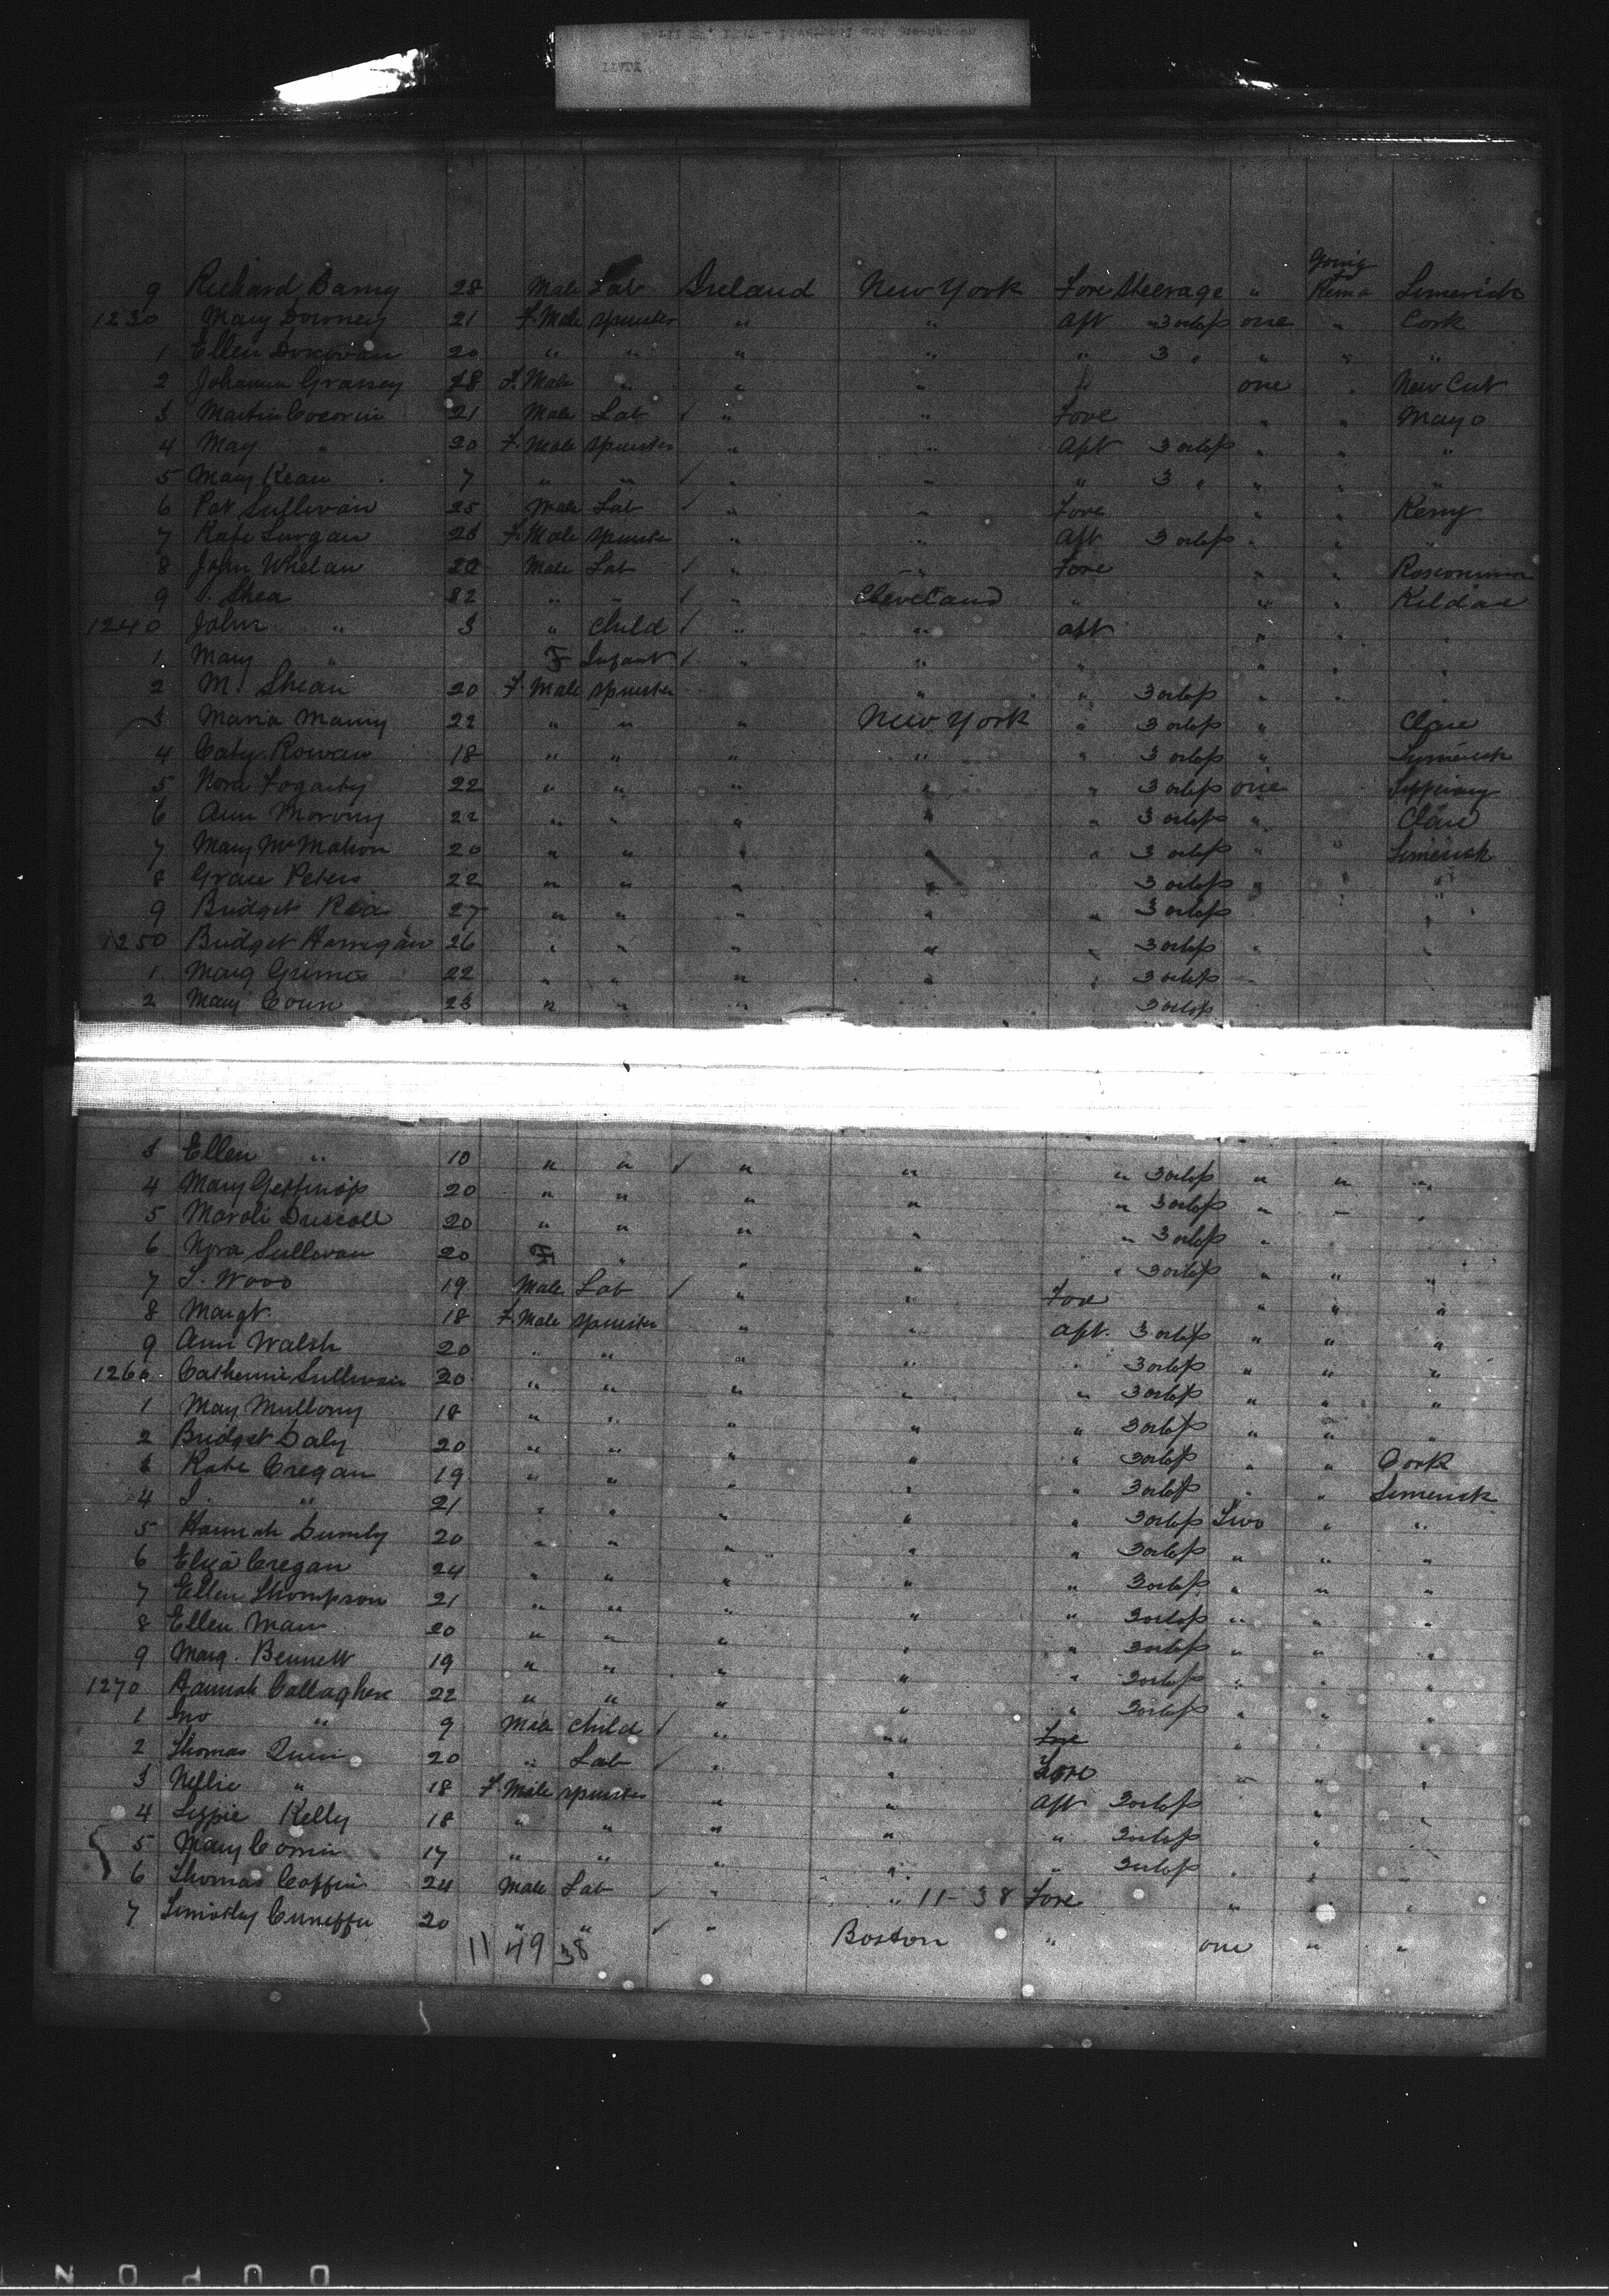 Going
9 Richard Barry 28 Male Lab Ireland New York Fore Steerage " Rema Limerick
1230 Mary Downey 21 F. Male Spinster " " Aft " 3 orlop one " Cork
1 Ellen Donovan 20 " " " " " 3 " " " "
2 Johanna 28 F. Male " " " " one " New Cut
3 Martin 21 Male Lab " " Fore " " Mayo
4 May " 20 F. Male Spinster " " Aft 3 orlop " " "
5 Mary Kean 7 " " " " " 3 " " " "
6 Pat Sullivan 25 Male Lab " " Fore " " Kerry
7 Kate F. Male Spinster " " Aft 3 orlop " " "
8 John Whelan 20 Male Lab " " Fore " "
9 Shea 32 " " " Cleveland " " " Kildae
1240 John " 3 " Child " " aft " " "
1 Mary " F Infant " " " " " "
2 M. Shean 20 F. Male Spinster " " 3 orlop " " "
3 Maria 22 " " " New York " 3 orlop " Clare
4 Caty Rowan 18 " " " " " 3 orlop " Lymerick
5 Nora Fogarty 22 " " " " " 3 orlop one
6 Ann Morony 22 " " " " " 3 orlop " Clare
7 Mary McMahon 20 " " " " " 3 orlop " " Limerick
8 Peters 22 " " " " 3 orlop " " "
9 Bridget Rea 27 " " " " " 3 orlop "
1250 Bridget Harrigan 26 " " " " " 3 orlop " "
1 Marg Grimes 22 " " " " " 3 orlop "
2 Mary 23 " " " 3 orlop
3 Ellen " 10 " " " " " 3 orlop " " "
4 Mary 20 " " " " " 3 orlop " " "
5 Driscoll 20 " " " " " 3 orlop "
6 Nora Sullovan 20 F " " " " 3 orlop " " "
7 Wood 19 Male Lab " " Fore " " "
8 Margt. 18 F. Male Spinster " " Aft. 3 orlop " " "
9 Ann Walsh 20 " " " " " 3 orlop " " "
1260 Catherine Sullivan 20 " " " " " 3 orlop " " "
1 May Mullony 18 " " " " " 3 orlop " " "
2 Bridget Daly 20 " " " " " 3 orlop " " Cork
3 Kate Cregan 19 " " " " " 3 orlop " " Limerick
4 " 21 " " " " " 3 orlop Two " "
5 Hannah 20 " " " " " 3 orlop " " "
6 Eliza Cregan 24 " " " " " 3 orlop " " "
7 Ellen Thompson 21 " " " " " 3 orlop " " "
8 Ellen 20 " " " " " 3 orlop " " "
9 Marg. Bennett 19 " " " " " 3 orlop " " "
1270 Hannah Callagher 22 " " " " " 3 orlop " " "
1 Jno " 9 Male Child " " Fore " " "
2 Thomas Quin 20 " Lab " " Fore " " "
3 Nellie " 18 F. Male Spinster " " Aft 3 orlop " "
4 Lizzie Kelly 18 " " " " " 3 orlop " "
5 Mary 17 " " " " " 3 orlop " " "
6 Thomas Coffin 24 Male Lab " " 11-38 Fore " " "
7 Timothy 20 " " " Boston " one " "
11 49 38
DUPON